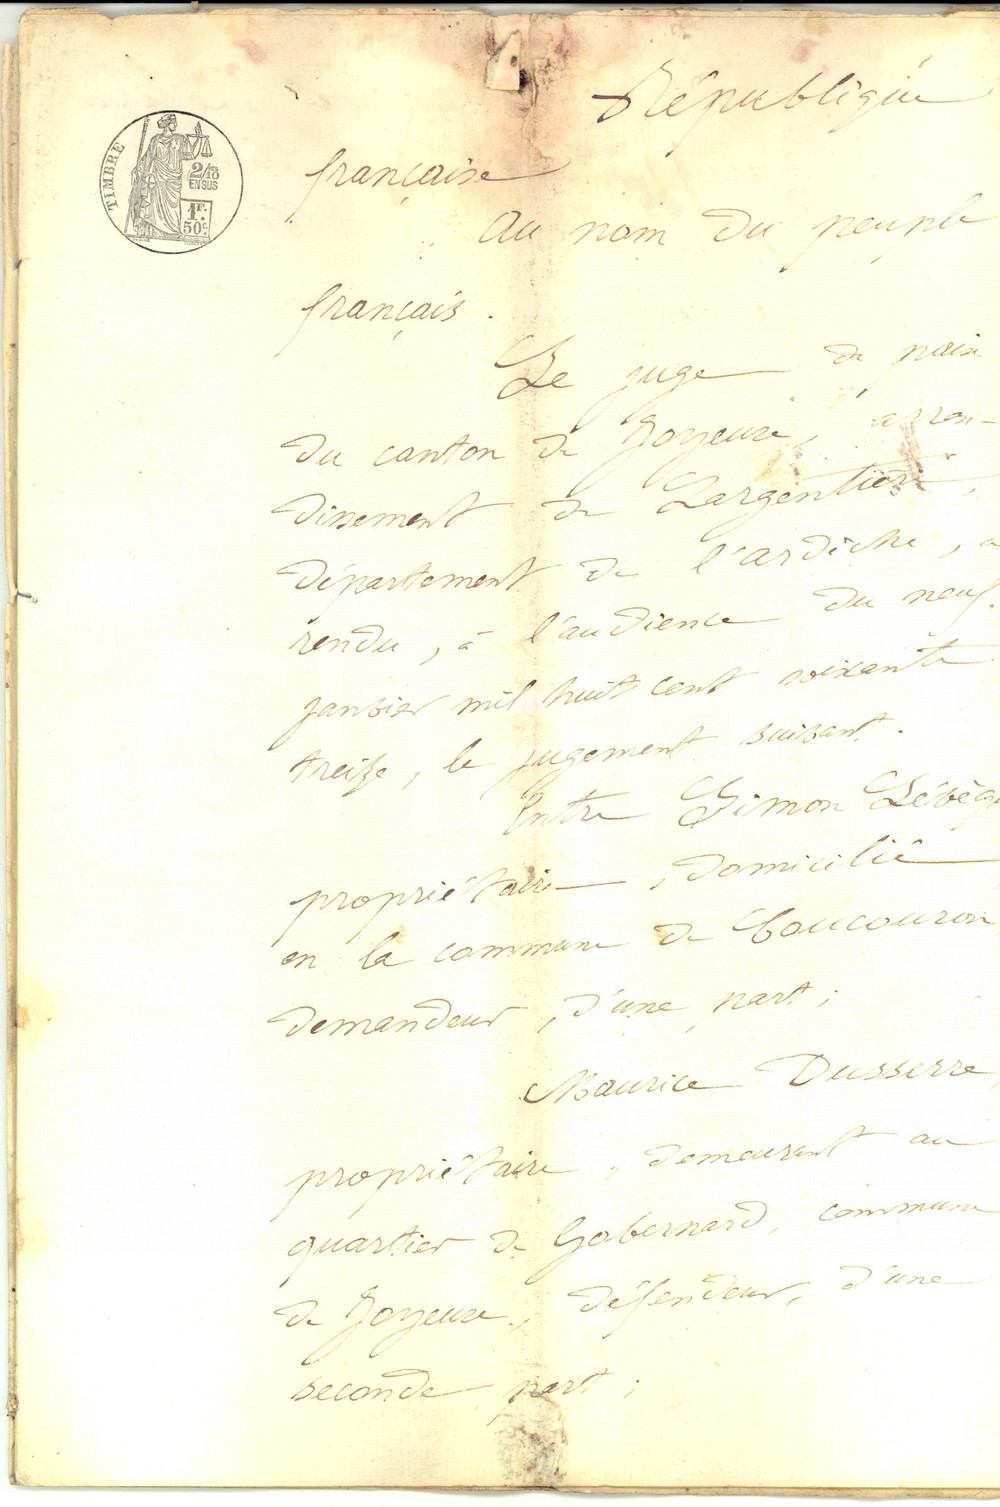 TIMBRE
2/10
EN SUS
1F.
50c.
République
française
au nom du peuple
français.
Le juge de paix
du canton de Joyeuse, arron-
dissement de Largentière,
département de l'ardèche, a
rendu, à l'audience du neuf
janvier mil huit cent soixante
treize, le jugement suivant.
Entre Simon Lévèq
propriétaire, domicilié
en la commune de Coucouron
demandeur, d'une part;
Maurice Dusserre,
propriétaire, demeurant au
quartier de Gobernard, commune
de Joyeuse, défendeur, d'une
seconde part;